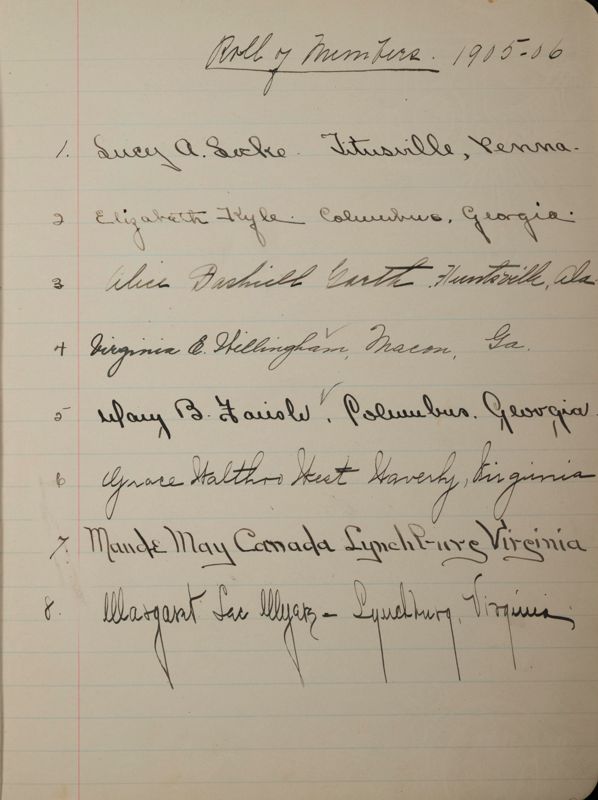 Roll of Members. 1905-06
1. Lucy A. Locke. Titusville, Penna.
2 Elizabeth Kyle. Columbus, Georgia.
3 Alice Dashiell Garth. Huntsville, Ala.
4 Virginia E. Willingham, Macon, Ga.
5 Mary B. Columbus. Georgia.
6 Grace Walthro West Waverly, Virginia
7. Maude May Canada Lynchburg Virginia
8. Margaret Lynchburg, Virginia.